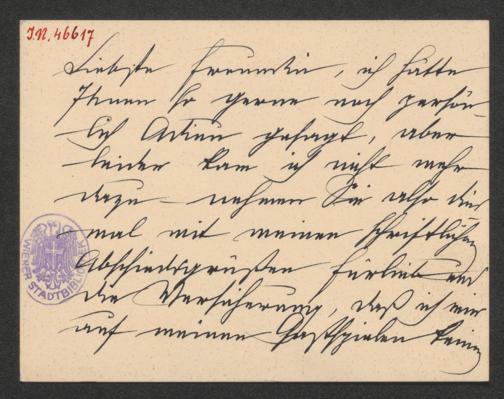 I.N. 46617
Liebste Freundin, ich hätte
Ihnen so gerne noch persön-
lich Adieu gesagt, aber
leider kam ich nicht mehr
dazu – nehmen Sie also dies
mal mit meinen schriftlichen
Abschiedsgrüßen fürlieb und
die Versicherung, daß ich mir
auf meinen Gastspielen keinen
WIENER STADTBIBLIOTHEK